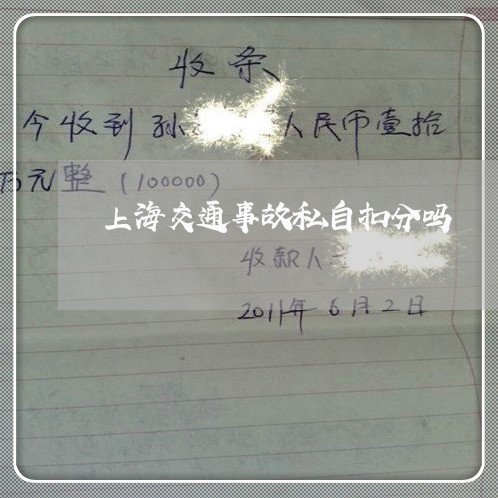 收条
今收到孙 人民币壹拾
万元整(100000)
上海交通事故私自扣分吗
收款人:
2011年6月2日